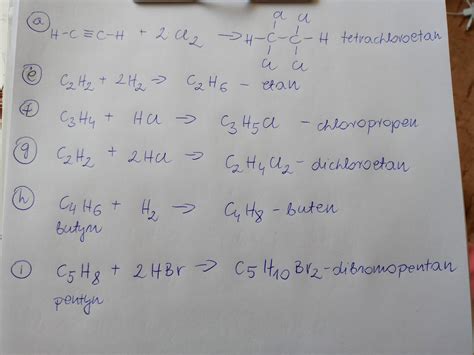 Cl Cl
a) H-C≡C-H + 2Cl2 → H-C-C-H tetrachloroetan
Cl Cl
e) C2H2 + 2H2 → C2H6 - etan
f) C3H4 + HCl → C3H5Cl - chloropropen
g) C2H2 + 2HCl → C2H4Cl2 - dichloroetan
h) C4H6 + H2 → C4H8 - buten
butyn
i) C5H8 + 2HBr → C5H10Br2 - dibromopentan
pentyn